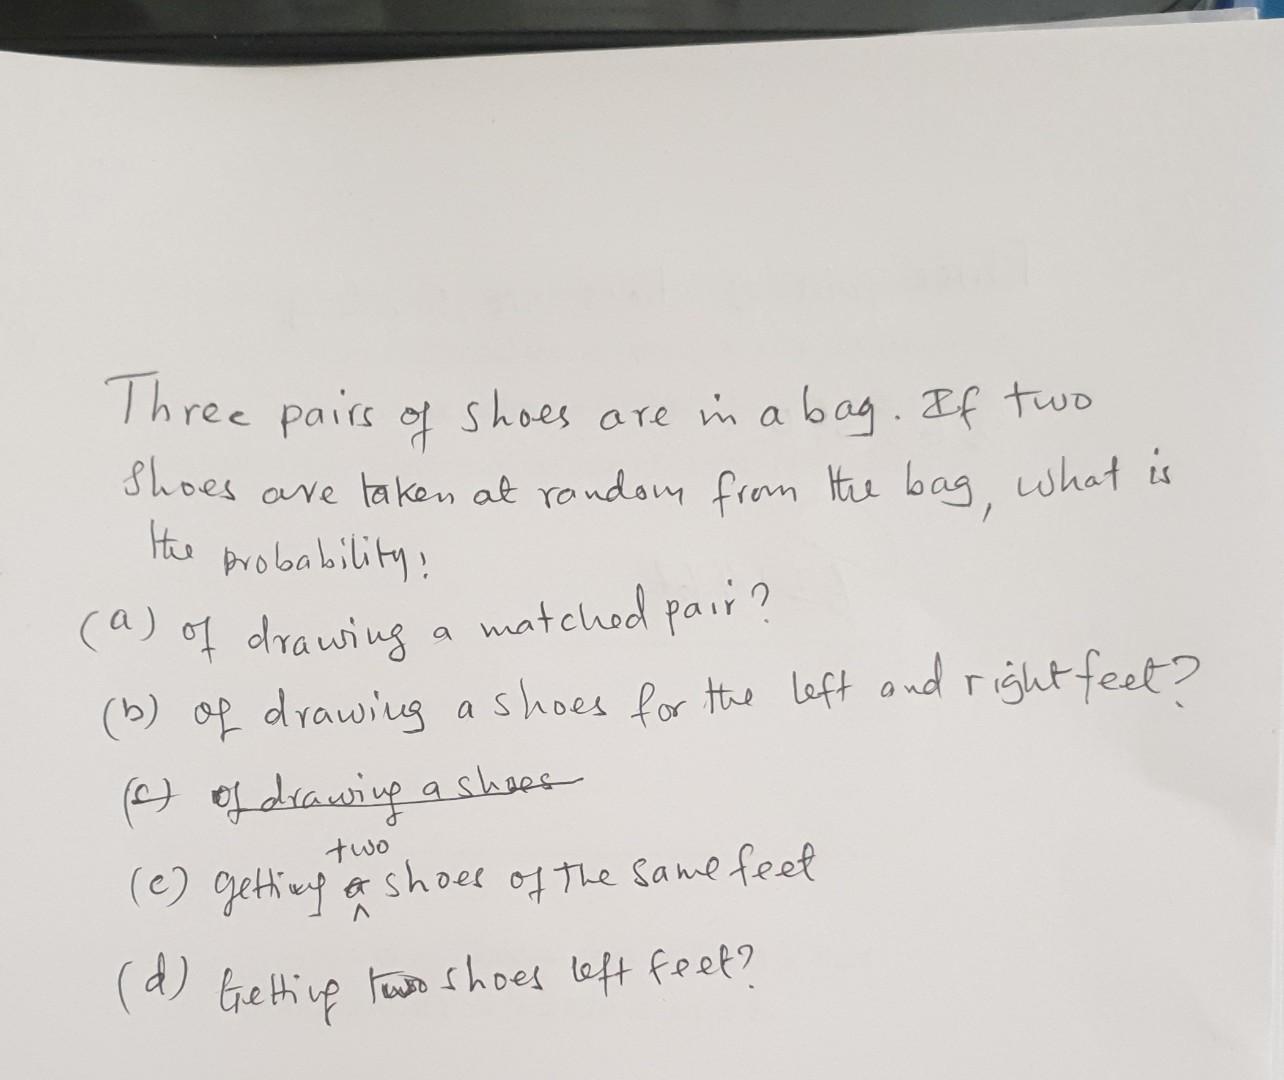 Three pairs of shoes are in a bag. If two
shoes are taken at random from the bag, what is
the probability:
(a) of drawing a matched pair?
(b) of drawing a shoes for the left and right feet?
(c) of drawing a shoes
two
(c) getting a shoes of the same feet
^
(d) Getting two shoes left feet?